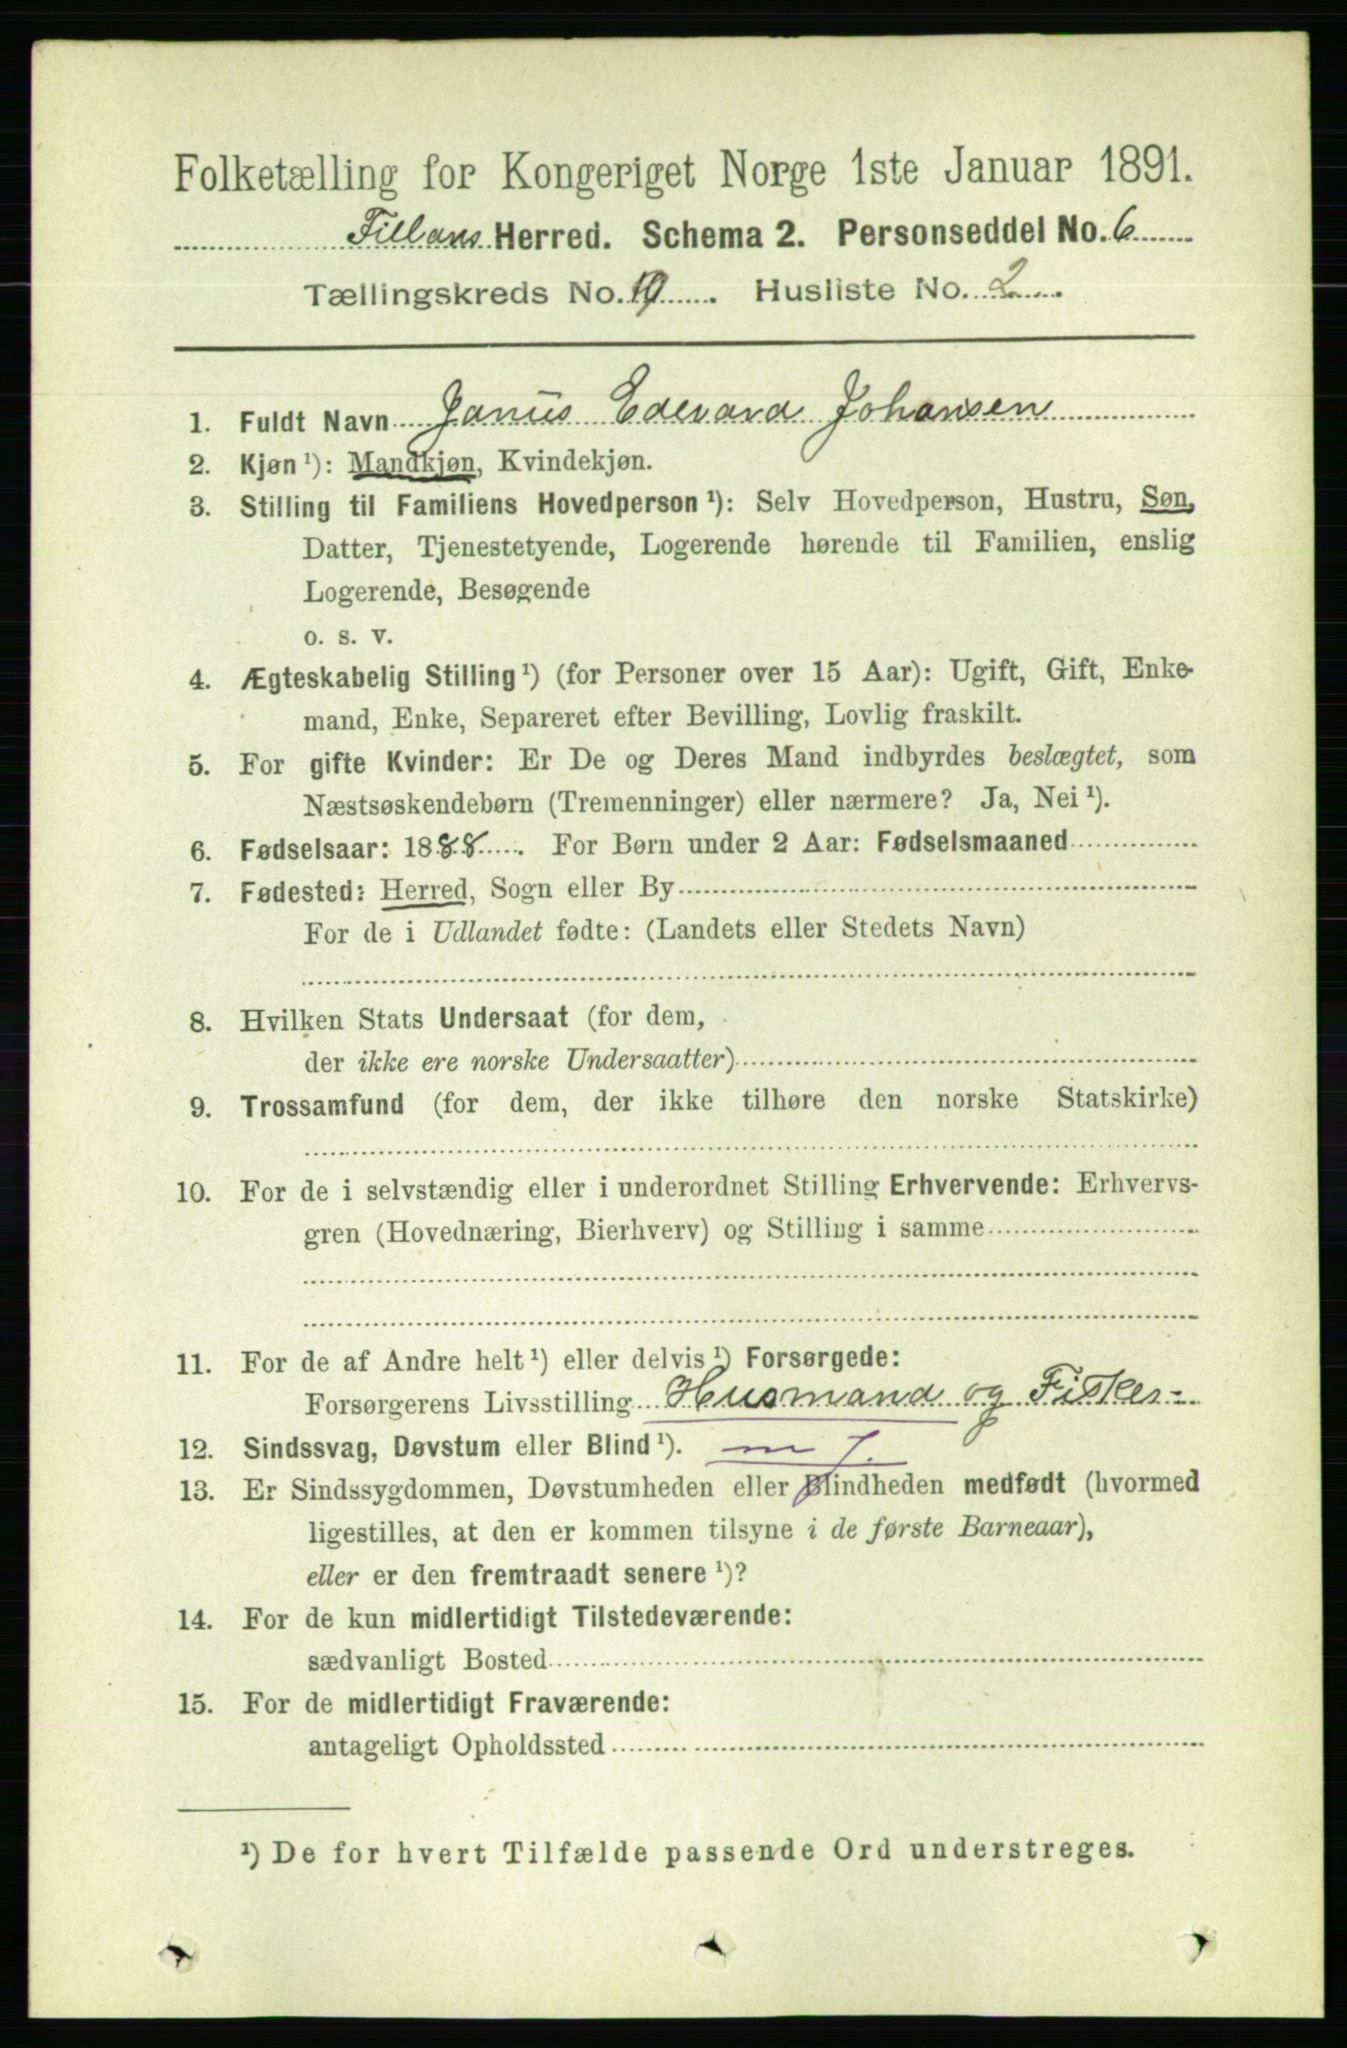 Folketælling for Kongeriget Norge 1ste Januar 1891.
Fillans Herred. Schema 2. Personseddel No. 6
Tællingskreds No. Husliste No. 2
1. Fuldt Navn Janus Edevard Johansen
2. Kjøn ¹): Mandkjøn, Kvindekjøn.
3. Stilling til Familiens Hovedperson ¹): Selv Hovedperson, Hustru, Søn,
Datter, Tjenestetyende, Logerende hørende til Familien, enslig
Logerende, Besøgende
o. s. v.
4. Ægteskabelig Stilling ¹) (for Personer over 15 Aar): Ugift, Gift, Enke-
mand, Enke, Separeret efter Bevilling, Lovlig fraskilt.
5. For gifte Kvinder: Er De og Deres Mand indbyrdes beslægtet, som
Næstsøskendebørn (Tremenninger) eller nærmere? Ja, Nei ¹).
6. Fødselsaar: 1888. For Børn under 2 Aar: Fødselsmaaned
7. Fødested: Herred, Sogn eller By
For de i Udlandet fødte: (Landets eller Stedets Navn)
8. Hvilken Stats Undersaat (for dem,
der ikke ere norske Undersaatter)
9. Trossamfund (for dem, der ikke tilhøre den norske Statskirke)
10. For de i selvstændig eller i underordnet Stilling Erhvervende: Erhvervs-
gren (Hovednæring, Bierhverv) og Stilling i samme
11. For de af Andre helt ¹) eller delvis ¹) Forsørgede:
Forsørgerens Livsstilling Husmand og Fisker-
12. Sindssvag, Døvstum eller Blind ¹).
13. Er Sindssygdommen, Døvstumheden eller Blindheden medfødt (hvormed
ligestilles, at den er kommen tilsyne i de første Barneaar),
eller er den fremtraadt senere ¹)?
14. For de kun midlertidigt Tilstedeværende:
sædvanligt Bosted
15. For de midlertidigt Fraværende:
antageligt Opholdssted
¹) De for hvert Tilfælde passende Ord understreges.